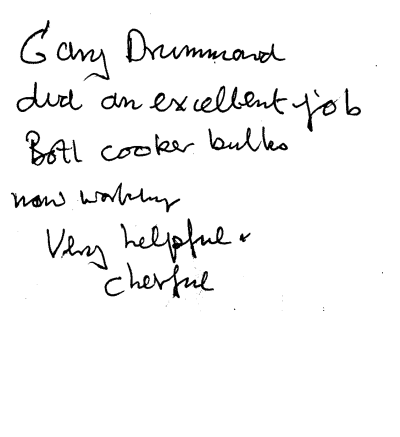 Gary Drummond
did an excellent job
Both cooker bulbs
now working
Very helpful &
cheerful